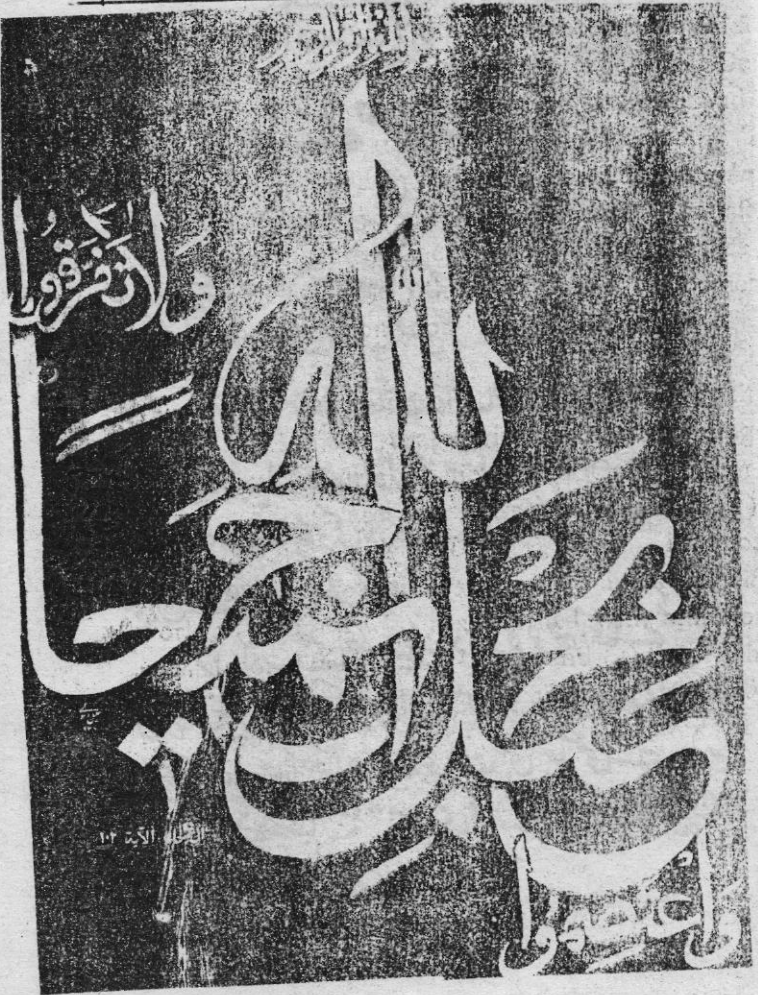 بسم الله الرحمن الرحيم
وَاعْتَصِمُوا
بِحَبْلِ اللهِ جَمِيعًا
وَلَا تَفَرَّقُوا
الآية ١٠٣